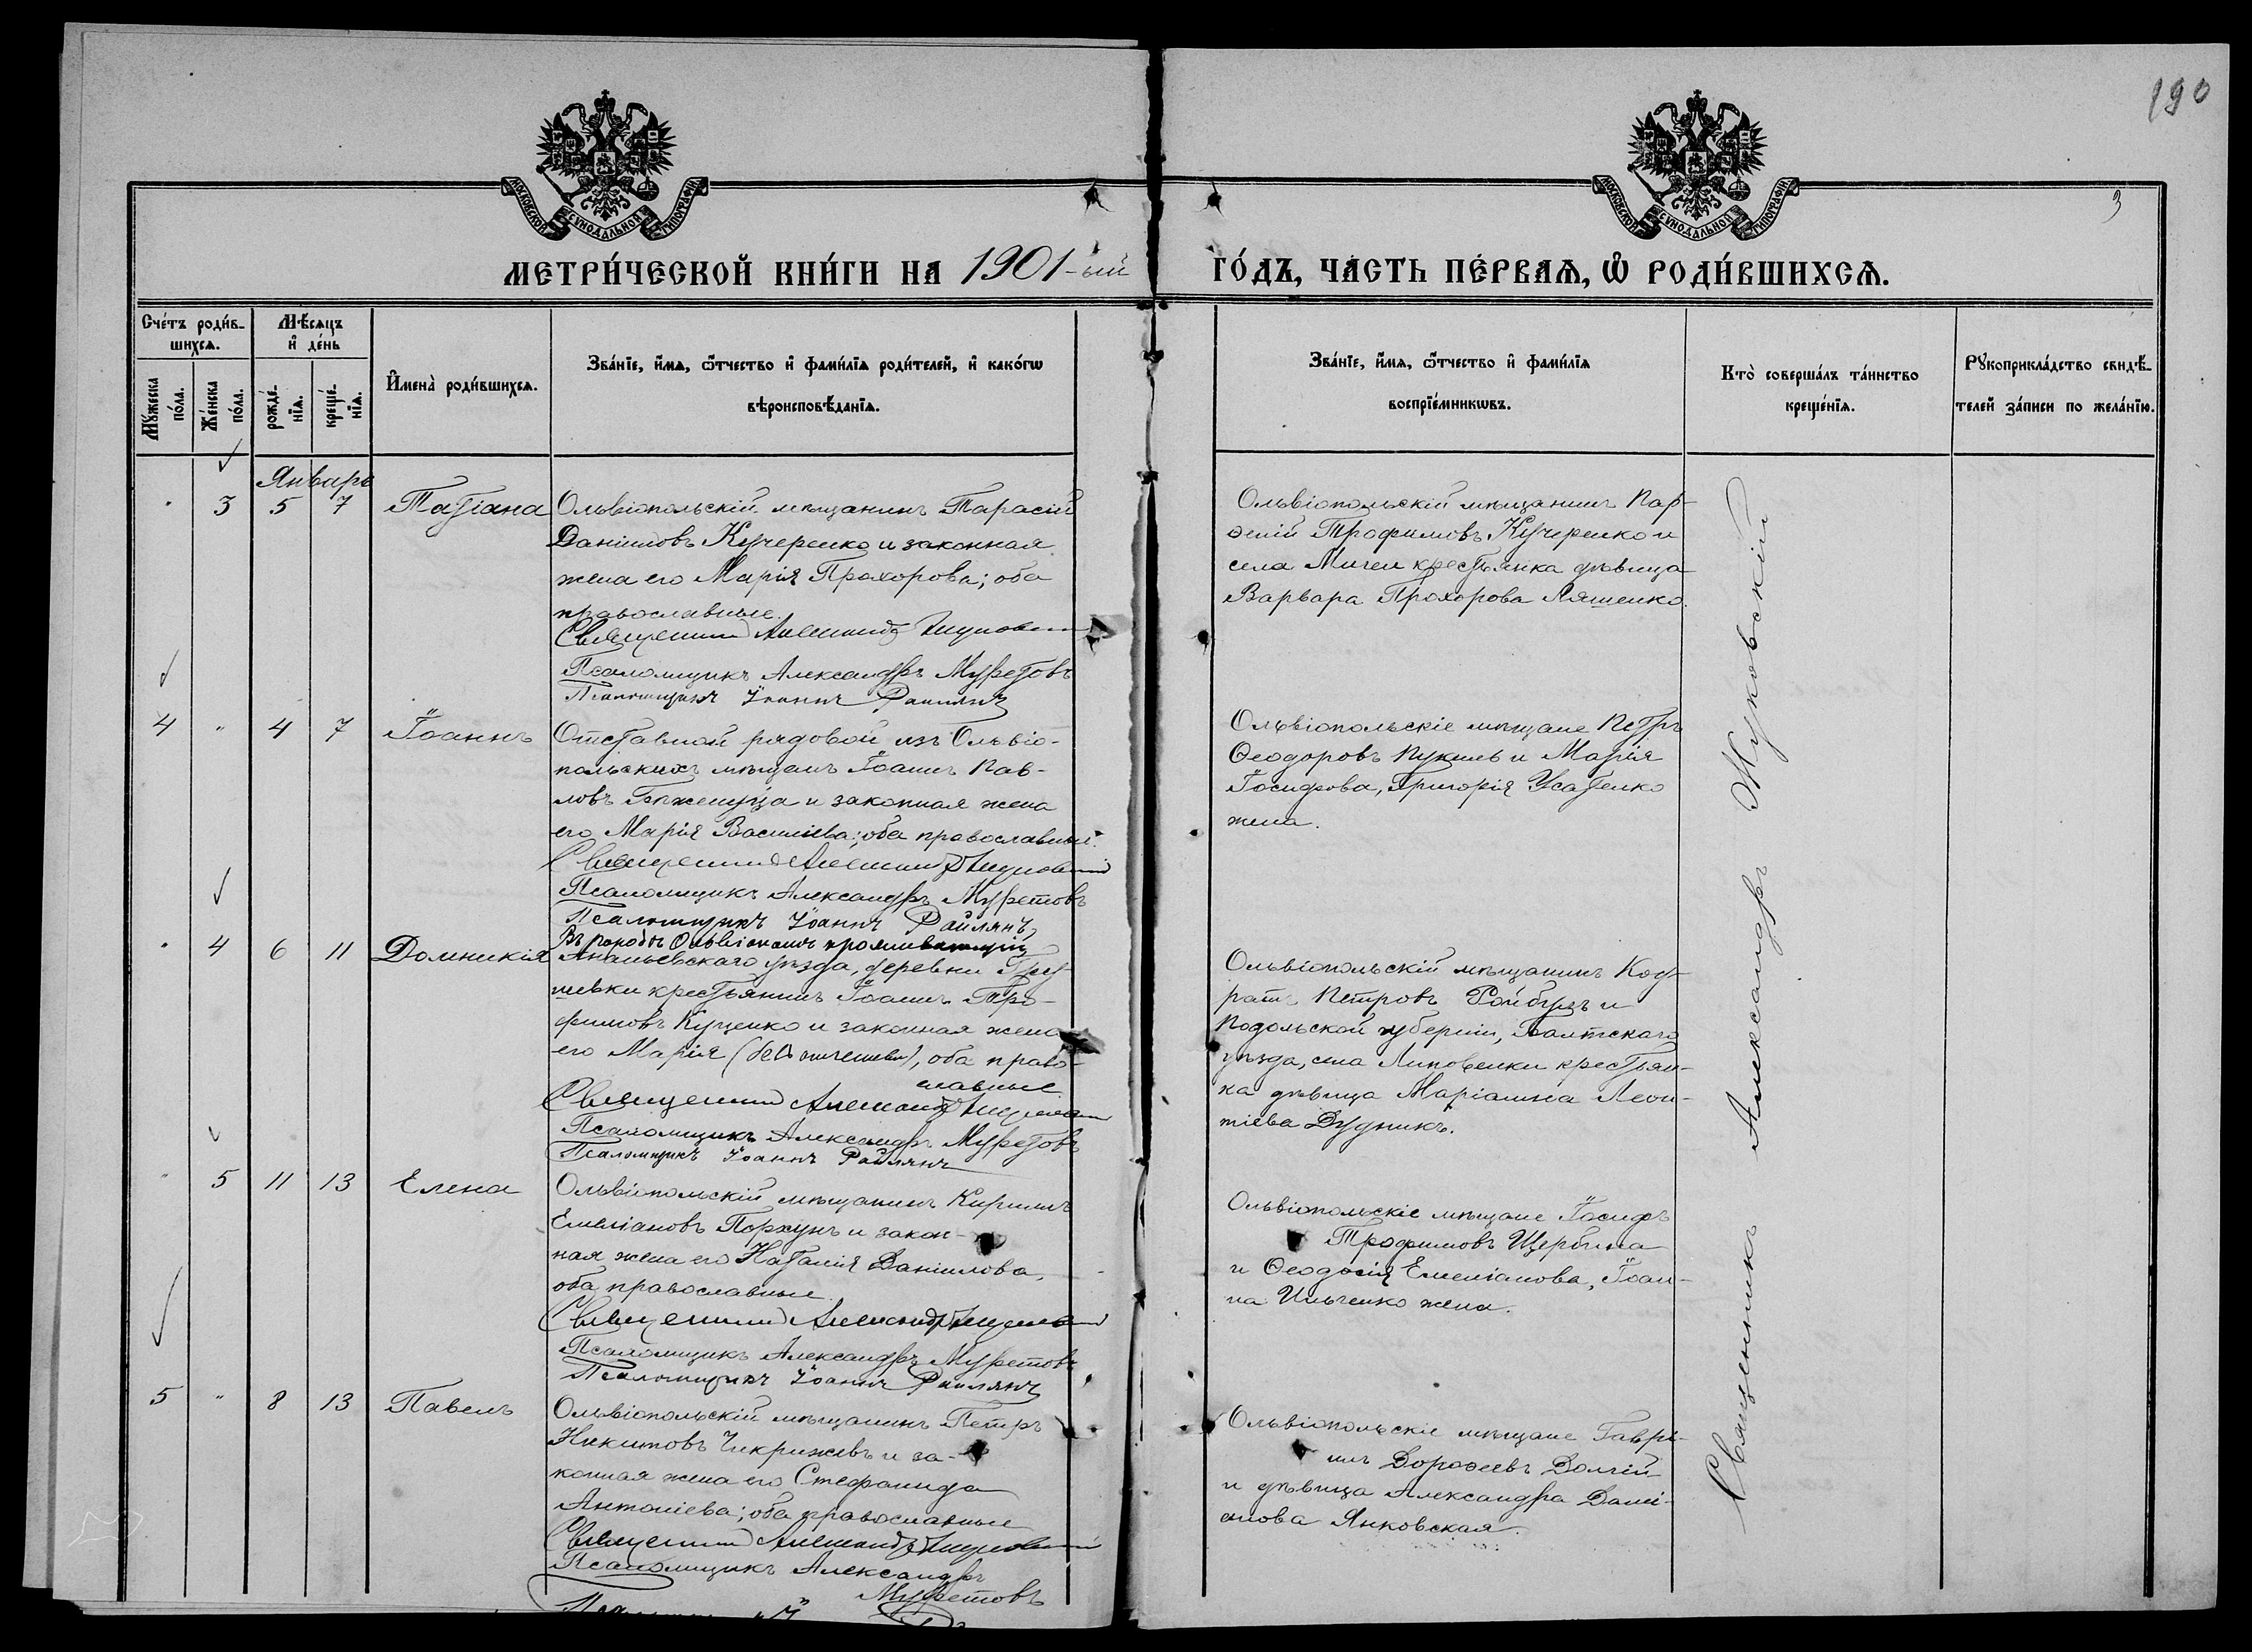 190
3
МОСКОВСКОЙ СѴНОДАЛЬНОЙ ТИПОГРАФІИ
МОСКОВСКОЙ СѴНОДАЛЬНОЙ ТИПОГРАФІИ
МЕТРИ́ЧЕСКОЙ КНИ́ГИ НА 1901-ый
ГО́ДЪ, ЧА́СТЬ ПЕ́РВАѦ, Ѡ҆ РОДИ́ВШИХСѦ.
Сче́тъ роди́в-
шихсѧ.
Мѣ́сѧцъ
и҆ де́нь
Мꙋ́жеска
по́ла.
Же́нска
по́ла.
рожде́-
нїѧ.
креще́-
нїѧ.
И҆мена̀ роди́вшихсѧ.
Зва́нїе, и҆́мѧ, ѻ҆́тчество и҆ фами́лїѧ роди́телей, и҆ како́гѡ
вѣроисповѣ́данїѧ.
Зва́нїе, и҆́мѧ, ѻ҆́тчество и҆ фами́лїѧ
воспрїе́мникѡвъ.
Кто̀ соверша́лъ та́инство
креще́нїѧ.
Рꙋкоприкла́дство свидѣ́-
телей за́писи по жела́нїю.
Январь
" 3 5 7 Татіана
Ольвіопольскій мѣщанинъ Тарасій
Даніиловъ Кучеренко и законная
жена его Марія Прохорова; оба
православные.
Священникъ Александръ Жуковскій
Псаломщикъ Александръ Муретовъ
Псаломщикъ Іоаннъ Раилянъ
Ольвіопольскій мѣщанинъ Пар-
ѳеній Трофимовъ Кучеренко и
села Мигеи крестьянка дѣвица
Варвара Прохорова Ляшенко.
4 " 4 7 Іоаннъ
Отставной рядовой изъ Ольвіо-
польскихъ мѣщанъ Іоаннъ Пав-
ловъ и законная жена
его Марія Василіева; оба православные.
Священникъ Александръ Жуковскій
Псаломщикъ Александръ Муретовъ
Псаломщикъ Іоаннъ Раилянъ
Ольвіопольскіе мѣщане Петръ
Ѳеодоровъ Пукаль и Марія
Іосифова, Григорія Усатенко
жена.
" 4 6 11 Домникія
Въ городѣ Ольвіополѣ проживающій
Ананьевскаго уѣзда, деревни Гру-
шевки крестьянинъ Іоаннъ Тро-
фимовъ Куценко и законная жена
его Марія, оба право-
славные
Священникъ Александръ Жуковскій
Псаломщикъ Александръ Муретовъ
Псаломщикъ Іоаннъ Раилянъ
Ольвіопольскій мѣщанинъ Код-
ратъ Петровъ Ройбулъ и
Подольской губерніи, Балтскаго
уѣзда, села Липовенки крестьян-
ка дѣвица Маріамна Леон-
тіева Дудникъ.
" 5 11 13 Елена
Ольвіопольскій мѣщанинъ Кириллъ
Емеліановъ Порхунъ и закон-
ная жена его Наталія Даніилова,
оба православные
Священникъ Александръ Жуковскій
Псаломщикъ Александръ Муретовъ
Псаломщикъ Іоаннъ Раилянъ
Ольвіопольскіе мѣщане Іосифъ
Трофимовъ Щербина
и Ѳеодосія Емеліанова, Іоан-
на Ильченко жена.
5 " 8 13 Павелъ
Ольвіопольскій мѣщанинъ Петръ
Никитовъ Чикрижевъ и за-
конная жена его Стефанида
Антоніева; оба православные
Священникъ Александръ Жуковскій
Псаломщикъ Александръ
Муретовъ
Ольвіопольскіе мѣщане Гаврі-
илъ Дороѳеевъ Долгій
и дѣвица Александра Дамі-
анова Янковская.
Священникъ Александръ Жуковскій